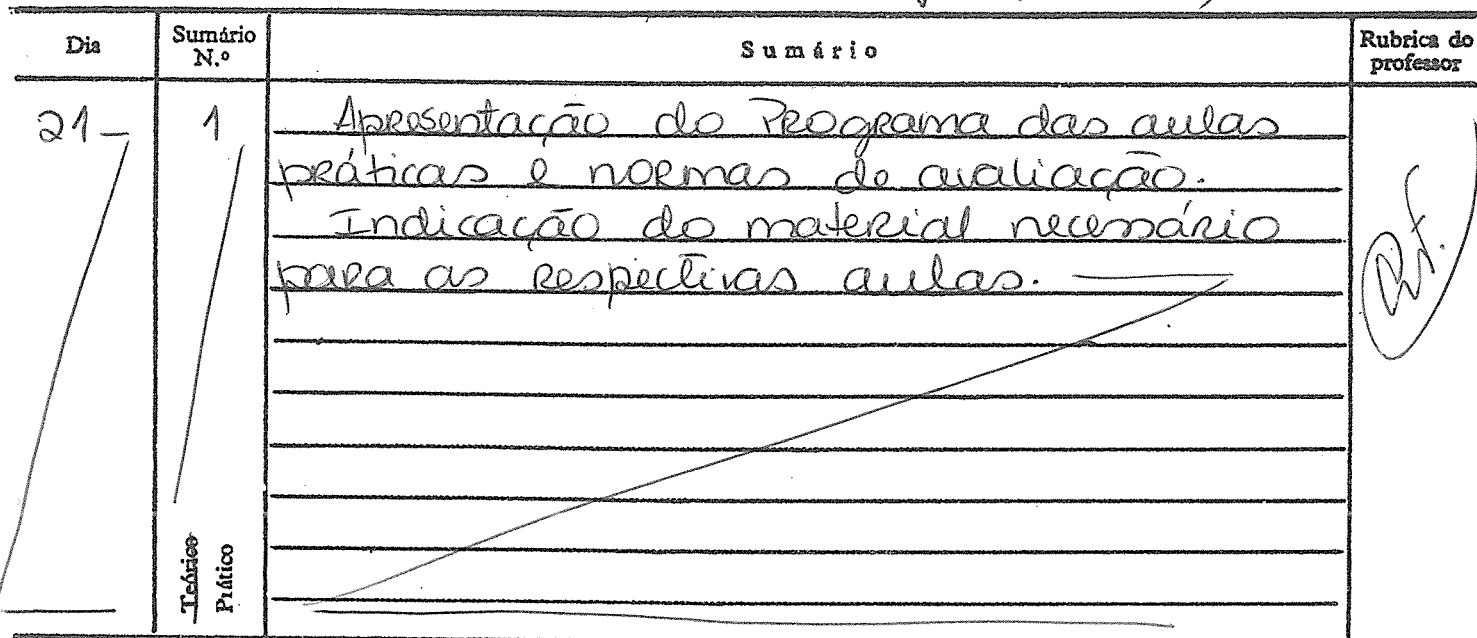 Dia
Sumário N.º
Sumário
Rubrica do professor
21-
1
Apresentação do Programa das aulas
práticas e normas de avaliação.
Indicação do material necessário
para as respectivas aulas.
Teórico
Prático